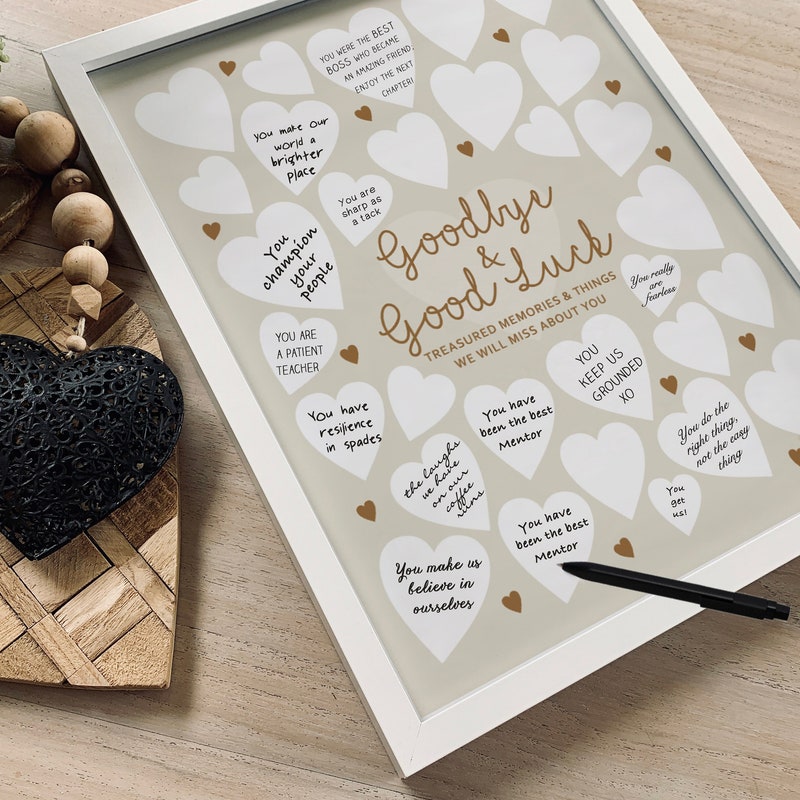 YOU WERE THE BEST
BOSS WHO BECAME
AN AMAZING FRIEND.
ENJOY THE NEXT
CHAPTER!
You make our
world a
brighter
place
You are
sharp as
a tack
You
champion
your
people
Goodbye
&
Good Luck
TREASURED MEMORIES & THINGS
WE WILL MISS ABOUT YOU
You really
are
fearless
YOU ARE
A PATIENT
TEACHER
YOU
KEEP US
GROUNDED
XO
You have
resilience
in spades
You have
been the best
Mentor
You do the
right thing,
not the easy
thing
the laughs
we have
on our
coffee
runs
You
get
us!
You have
been the best
Mentor
You make us
believe in
ourselves